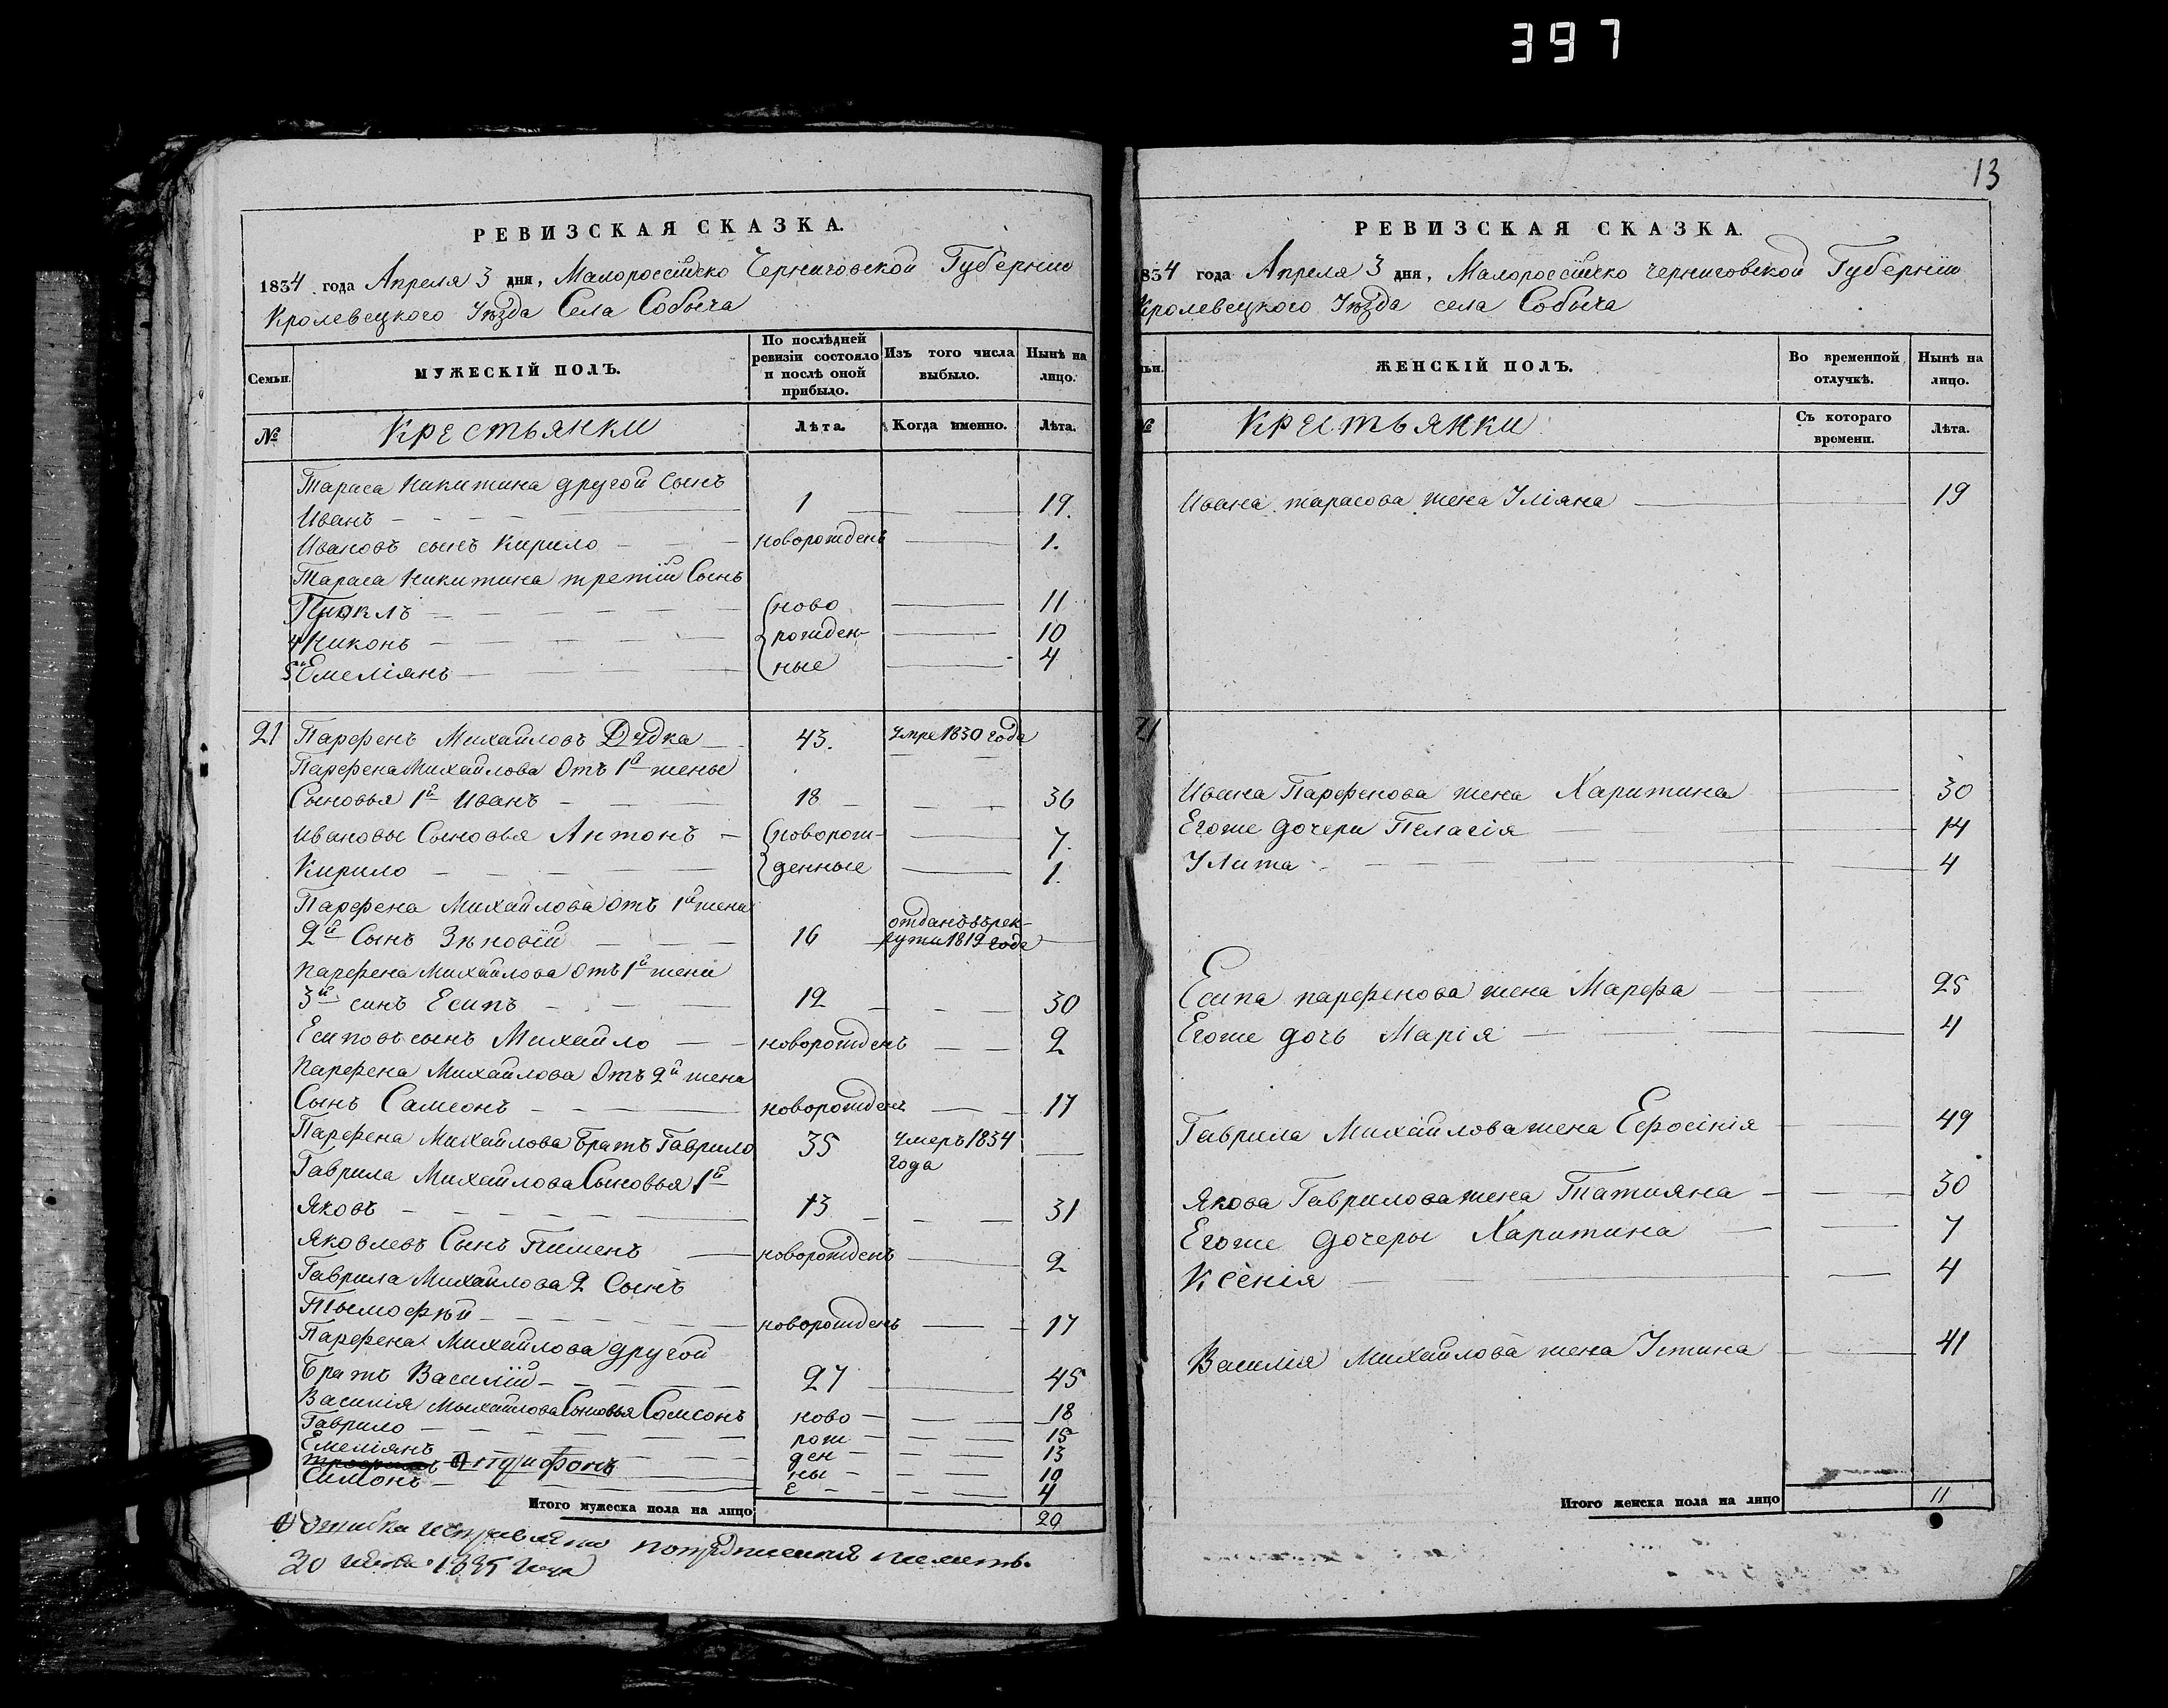 397
РЕВИЗСКАЯ СКАЗКА.
1834 года Апреля 3 дня, Малороссійско Черниговской Губерніи
Кролевецкого Уѣзда Села Собыча
Семьи.
МУЖЕСКІЙ ПОЛЪ.
По послѣдней ревизіи состояло и послѣ оной прибыло.
Изъ того числа выбыло.
Нынѣ на лицо.
№
Крестьянки
Лѣта.
Когда именно.
Лѣта.
Тараса Никитина другой Сынъ
Иванъ 1 19.
Ивановъ сынъ Кирило новорожденъ 1.
Тараса Никитина третій Сынъ
ново 11
4 Никонъ рожден- 10
5й Емеліянъ ные 4
21 Парфенъ Михайловъ Дудка 43. Умре 1830 года
Парфена Михайлова Отъ 1й жены
Сыновья 1й Иванъ 18 36
Ивановы Сыновья Антонъ новорож- 7.
Кирило денные 1.
Парфена Михайлова Отъ 1й жени
2й Сынъ Зѣновій 16 отданъ въ рек-
рути 1819 года
Парфена Михайлова Отъ 1й жени
3й синъ Есипъ 12 30
Есиповъ сынъ Михайло новорожденъ 2
Парфена Михайлова Отъ 2й жена
Сынъ Самсонъ новорожденъ 17
Парфена Михайлова Братъ Гаврило 35 Умеръ 1834
года
Гаврила Михайлова Сыновья 1й
Яковъ 13 31
Яковлевъ Сынъ Пименъ новорожденъ 2
Гаврила Михайлова 2 Сынъ
Тымофѣй новорожденъ 17
Парфена Михайлова другой
Братъ Василій 27 45
Василія Мыхайлова Сыновья Самсонъ ново 18
Гаврило рож 15
Емеліянъ ден 13
ны 10
Симонъ е 4
Итого мужеска пола на лицо 20
Ошибка
30 1835 года
13
РЕВИЗСКАЯ СКАЗКА.
1834 года Апреля 3 дня, Малороссійско Черниговской Губерніи
Кролевецкого Уѣзда села Собыча
ЖЕНСКІЙ ПОЛЪ.
Во временной отлучкѣ.
Нынѣ на лицо.
Крестьянки
Съ котораго времени.
Лѣта.
Ивана тарасова жена Уліяна 19
21
Ивана Парфенова жена Харитина 30
Егоже дочери Пелагія 14
Улита 4
Есипа парфенова жена Марфа 25
Егоже дочь Марія 4
Гаврила Михайлова жена Ефросінія 49
Якова Гаврилова жена Татияна 30
Егоже дочеры Харитина 7
Ксенія 4
Василія Михайлова жена Устина 41
Итого женска пола на лицо 11